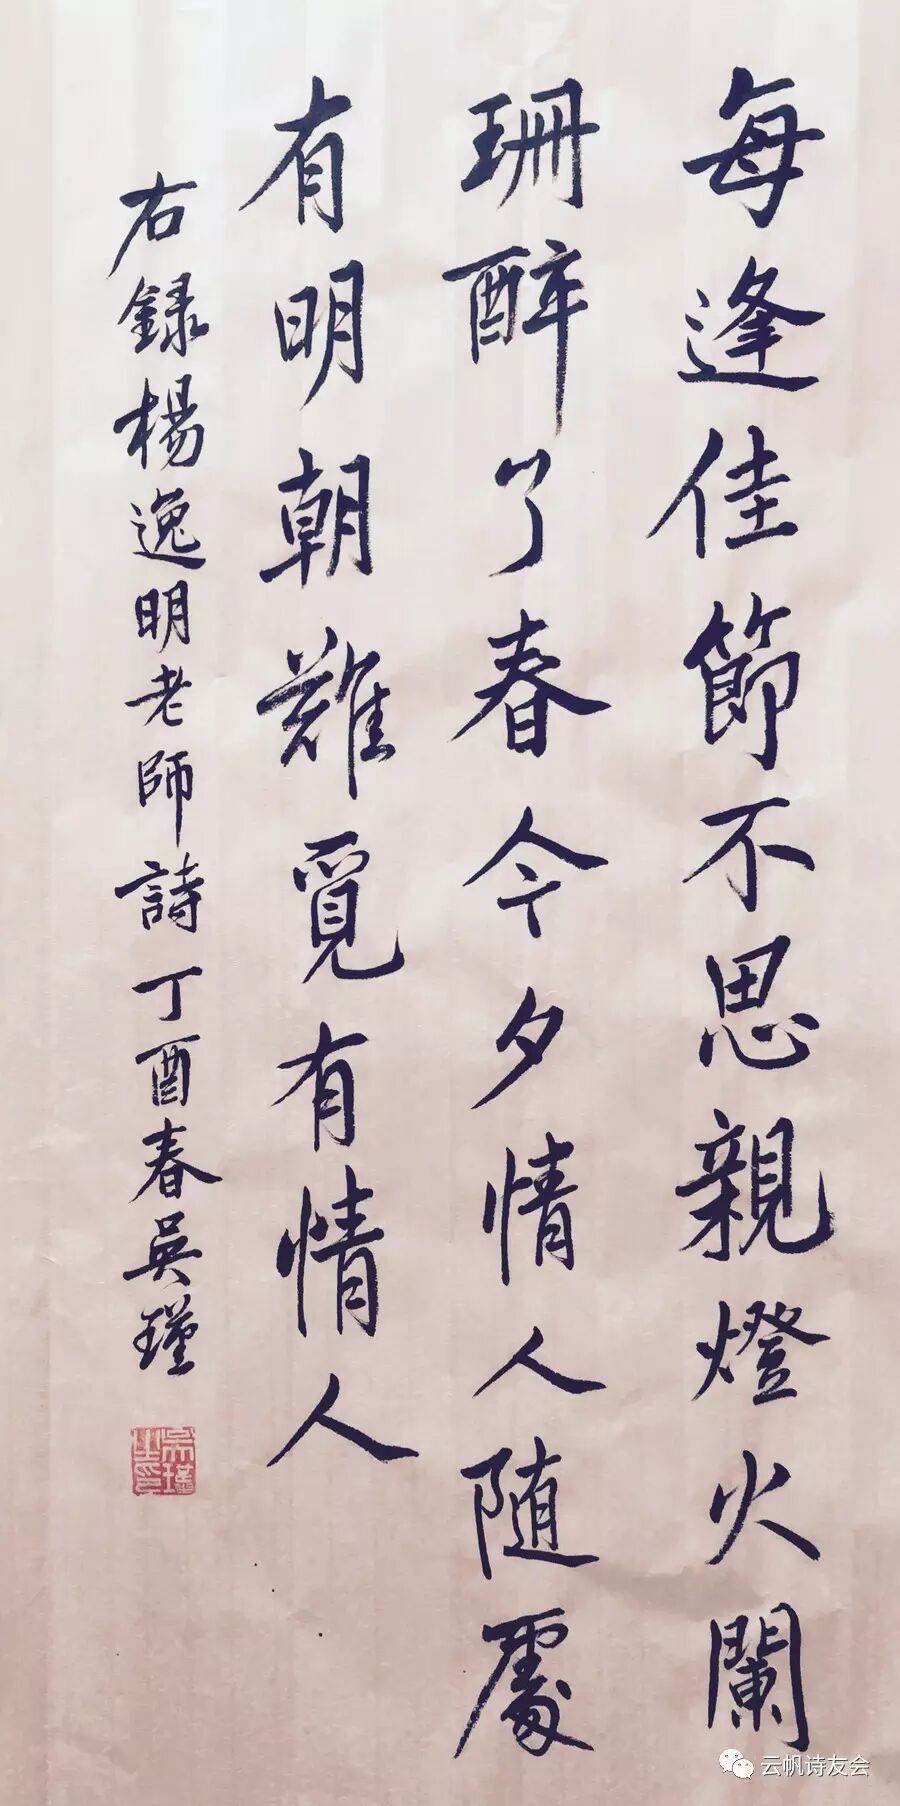 每逢佳節不思親燈火闌
珊醉了春今夕情人随處
有明朝難覓有情人
右録楊逸明老師詩丁酉春吴瑾
吴瑾之印
云帆诗友会